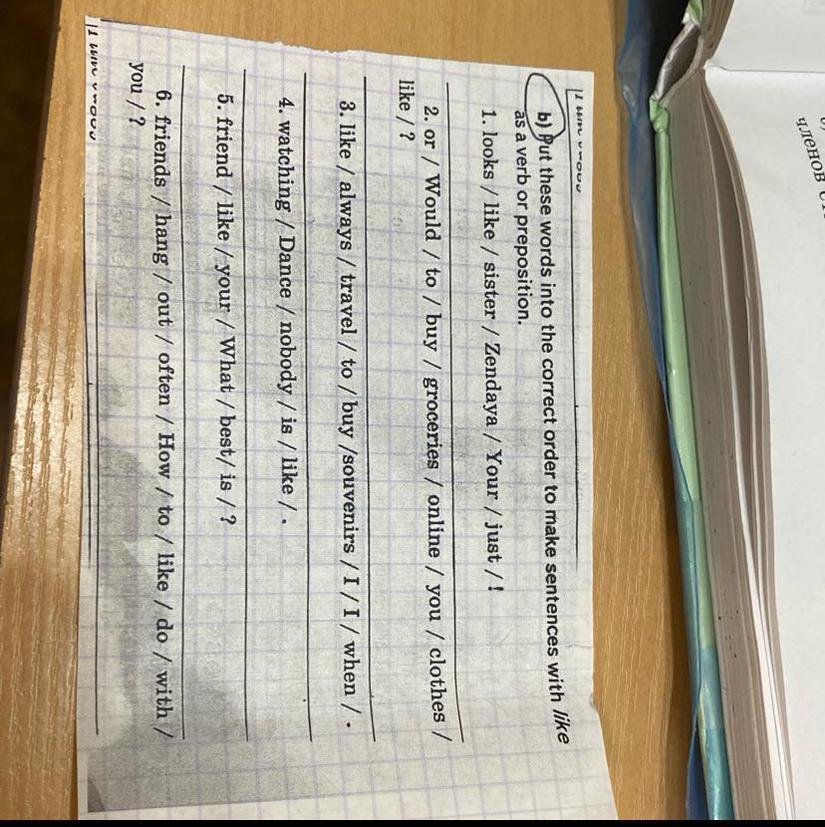 b) Put these words into the correct order to make sentences with like
as a verb or preposition.
1. looks / like / sister / Zendaya / Your / just / !
2. or / Would / to / buy / groceries / online / you / clothes /
like / ?
3. like / always / travel / to / buy /souvenirs / I / I / when / .
4. watching / Dance / nobody / is / like / .
5. friend / like / your / What / best/ is / ?
6. friends / hang / out / often / How / to / like / do / with /
you / ?
членов